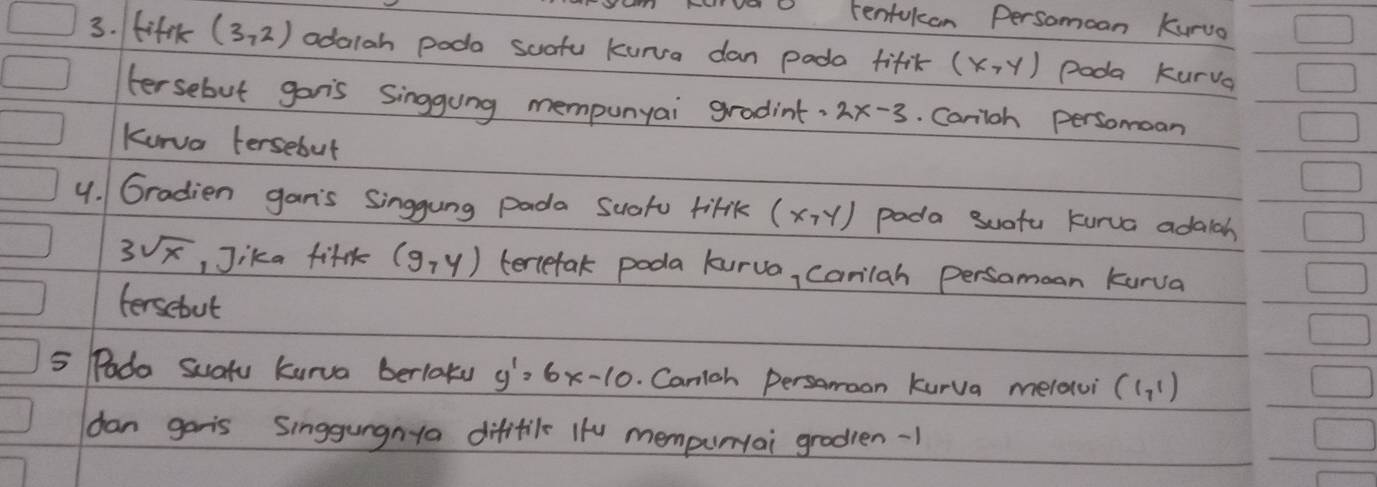 tentukan Persamaan Kurva
3. titik (3,2) adalah pada suatu kurva dan pada titik (x,y) pada kurva
tersebut garis singgung mempunyai gradint = 2x-3. Carilah persamaan
Kurva tersebut
4. Gradien garis singgung pada suatu titik (x,y) pada suatu kurva adalah
3√x, Jika titik (9,4) terletak pada kurva, carilah persamaan kurva
tersebut
5 Pada suatu kurva berlaku y'=6x-10. Carilah persamaan kurva melalui (1,1)
dan garis singgungnya dititik itu mempunyai gradien -1